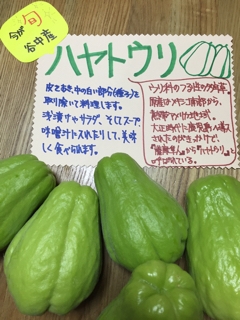 今が
旬
谷中産
ハヤトウリ
皮をむき、中の白い部分(種子)を
取り除いて料理します。
浅漬けやサラダ、そしてスープ
味噌汁に入れたりして、美味
しく食べられます。
ウリ科のつる性の多年草。
原産はメキシコ南部から、
熱帯アメリカ地域。
大正時代に鹿児島に導入
されたのがきっかけで、
「薩摩隼人」から「ハヤトウリ」と
呼ばれている。